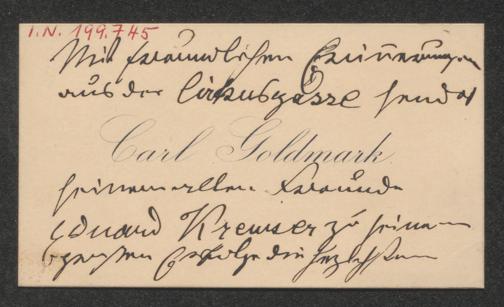 I.N. 199.745
Mit freundlichen Erinnerungen
aus der Cirkusgasse sendet
Carl Goldmark
seinem alten Freunde
Eduard Kremser zu seinem
großen Erfolge die herzlichsten